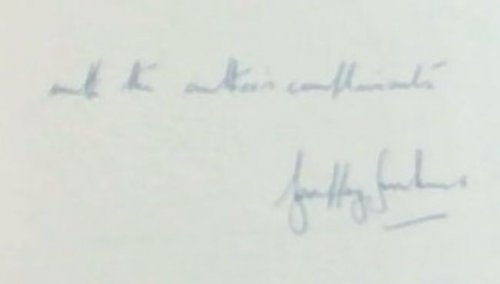 with the author's compliments
Geoffrey